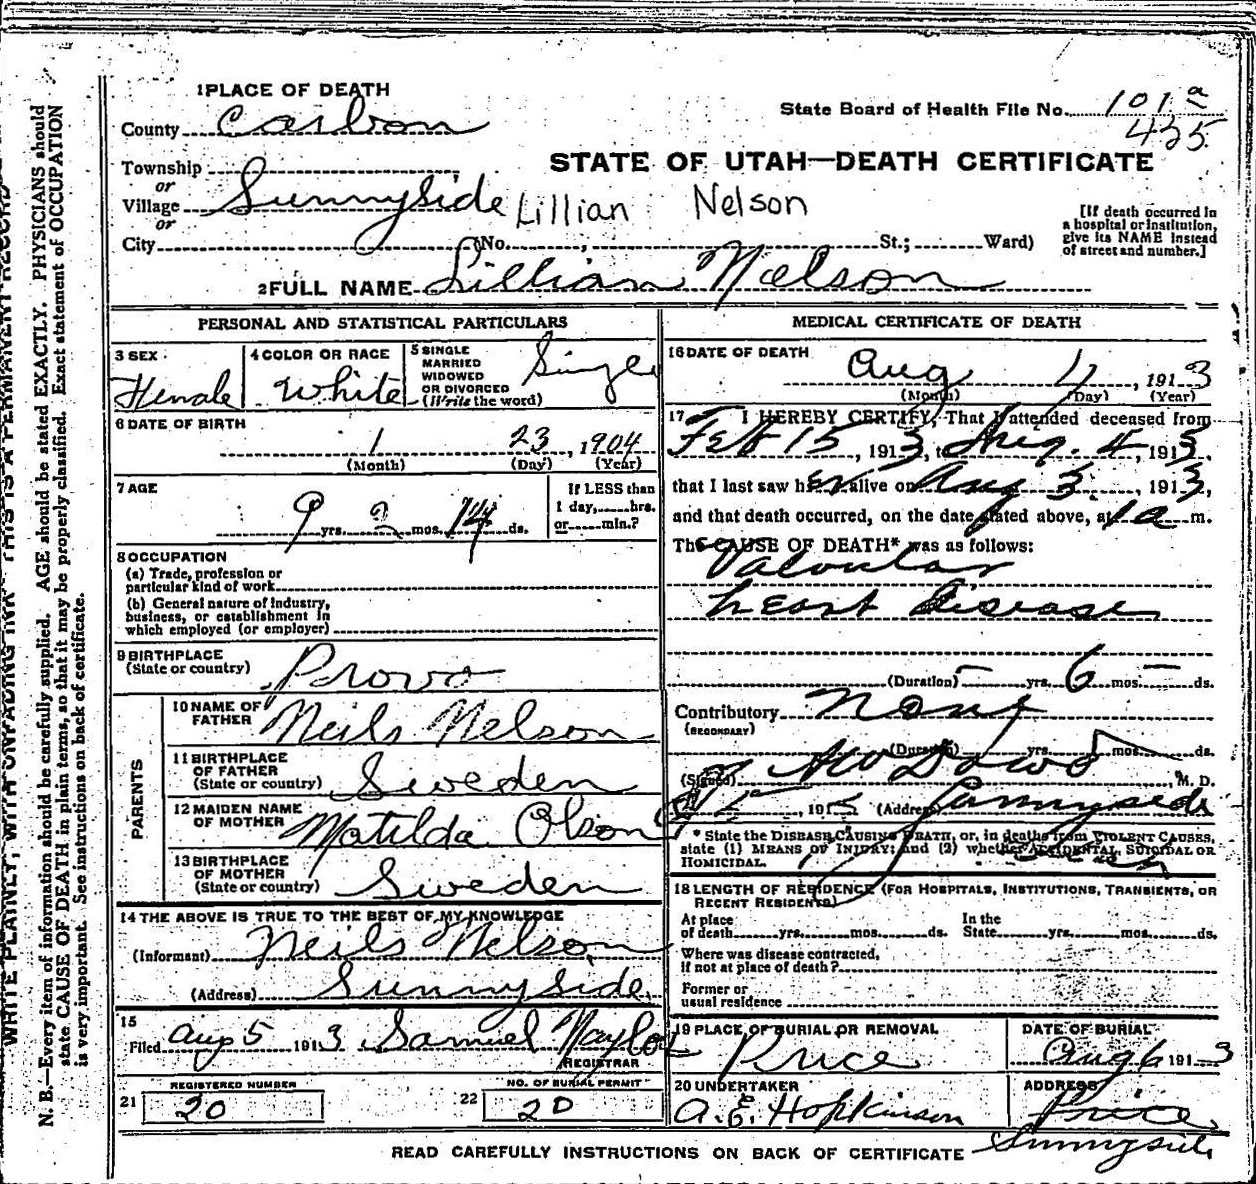 1 PLACE OF DEATH
State Board of Health File No. 101 a
435
County Carbon
STATE OF UTAH—DEATH CERTIFICATE
Township
or
Village Sunnyside
Lillian Nelson
or
City (No. , St.; Ward)
[If death occurred in
a hospital or institution,
give its NAME instead
of street and number.]
2 FULL NAME Lillian Nelson
PERSONAL AND STATISTICAL PARTICULARS
3 SEX
Female
4 COLOR OR RACE
White
5 SINGLE
MARRIED
WIDOWED
OR DIVORCED
(Write the word)
Single
6 DATE OF BIRTH
1 23, 1904
(Month) (Day) (Year)
7 AGE
9 yrs. 2 mos. 14 ds.
If LESS than
1 day, hrs.
or min.?
8 OCCUPATION
(a) Trade, profession or
particular kind of work
(b) General nature of industry,
business, or establishment in
which employed (or employer)
9 BIRTHPLACE
(State or country) Provo
PARENTS
10 NAME OF
FATHER Neils Nelson
11 BIRTHPLACE
OF FATHER
(State or country) Sweden
12 MAIDEN NAME
OF MOTHER Matilda Olson
13 BIRTHPLACE
OF MOTHER
(State or country) Sweden
14 THE ABOVE IS TRUE TO THE BEST OF MY KNOWLEDGE
(Informant) Neils Nelson
(Address) Sunnyside
15
Filed Aug 5 1913 Samuel Naylor
REGISTRAR
REGISTERED NUMBER
21 20
NO. OF BURIAL PERMIT
22 20
MEDICAL CERTIFICATE OF DEATH
16 DATE OF DEATH
Aug 4, 1913
(Month) (Day) (Year)
17 I HEREBY CERTIFY, That I attended deceased from
Feb 15, 1913, to Aug. 4, 1913,
that I last saw her alive on Aug 3, 1913,
and that death occurred, on the date stated above, at 1 a m.
The CAUSE OF DEATH* was as follows:
Valvular
heart disease
(Duration) yrs. 6 mos. ds.
Contributory None
(SECONDARY)
(Duration) yrs. mos. ds.
(Signed) M. D.
191 (Address) Sunnyside
* State the DISEASE CAUSING DEATH, or, in deaths from VIOLENT CAUSES,
state (1) MEANS OF INJURY; and (2) whether ACCIDENTAL, SUICIDAL OR
HOMICIDAL.
18 LENGTH OF RESIDENCE (FOR HOSPITALS, INSTITUTIONS, TRANSIENTS, OR
RECENT RESIDENTS)
At place
of death yrs. mos. ds.
In the
State yrs. mos. ds.
Where was disease contracted,
if not at place of death?
Former or
usual residence
19 PLACE OF BURIAL OR REMOVAL
Price
DATE OF BURIAL
Aug 6 1913
20 UNDERTAKER
A. E. Hopkinson
ADDRESS
Price
Sunnyside
READ CAREFULLY INSTRUCTIONS ON BACK OF CERTIFICATE
WRITE PLAINLY, WITH UNFADING INK—THIS IS A PERMANENT RECORD
N. B.—Every item of information should be carefully supplied. AGE should be stated EXACTLY. PHYSICIANS should
state CAUSE OF DEATH in plain terms, so that it may be properly classified. Exact statement of OCCUPATION
is very important. See instructions on back of certificate.